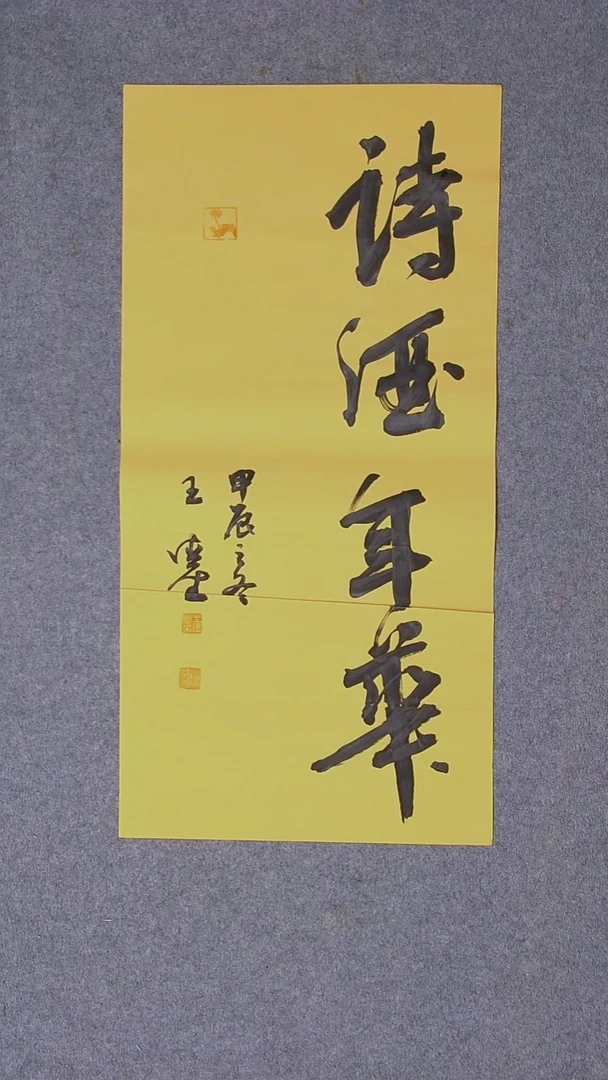 詩酒年華
甲辰之冬
王